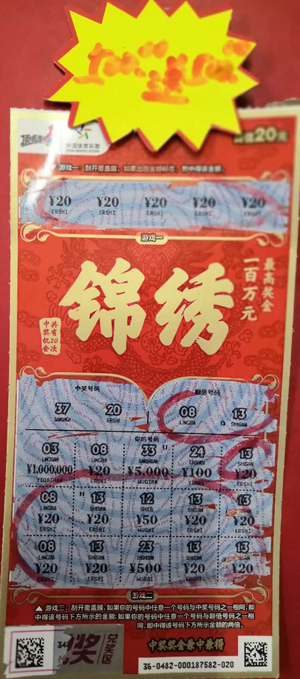 中国体育彩票
面值20元
游戏一：刮开覆盖膜，如果出现金额标志，即中得该金额。
¥20 ¥20 ¥20 ¥20 ¥20
ERSHI ERSHI ERSHI ERSHI ERSHI
游戏一
锦绣
最高奖金
一百万元
共有20次
中奖机会
中奖号码
37 20
ERSHI
08 13
你的号码
03 08 33 24 13
¥1,000,000 ¥20 ¥5,000 ¥100 ¥20
08 13 12 13 13
¥20 ¥20 ¥50 ¥20 ¥20
08 13 23 13 13
¥20 ¥20 ¥500 ¥20 ¥20
游戏二
▲ 游戏二：刮开覆盖膜，如果你的号码中任意一个号码与中奖号码之一相同，即
中得该号码下方所示的金额；如果你的号码中任意一个号码与超值号码之一相
同，即中得该号码下方所示金额的两倍。
奖
兑奖区
中奖奖金兼中兼得
36-0482-000187582-020